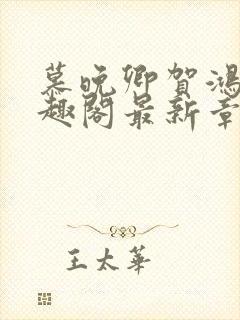 慕晚卿贺鸿
趣阁最新章
王太华